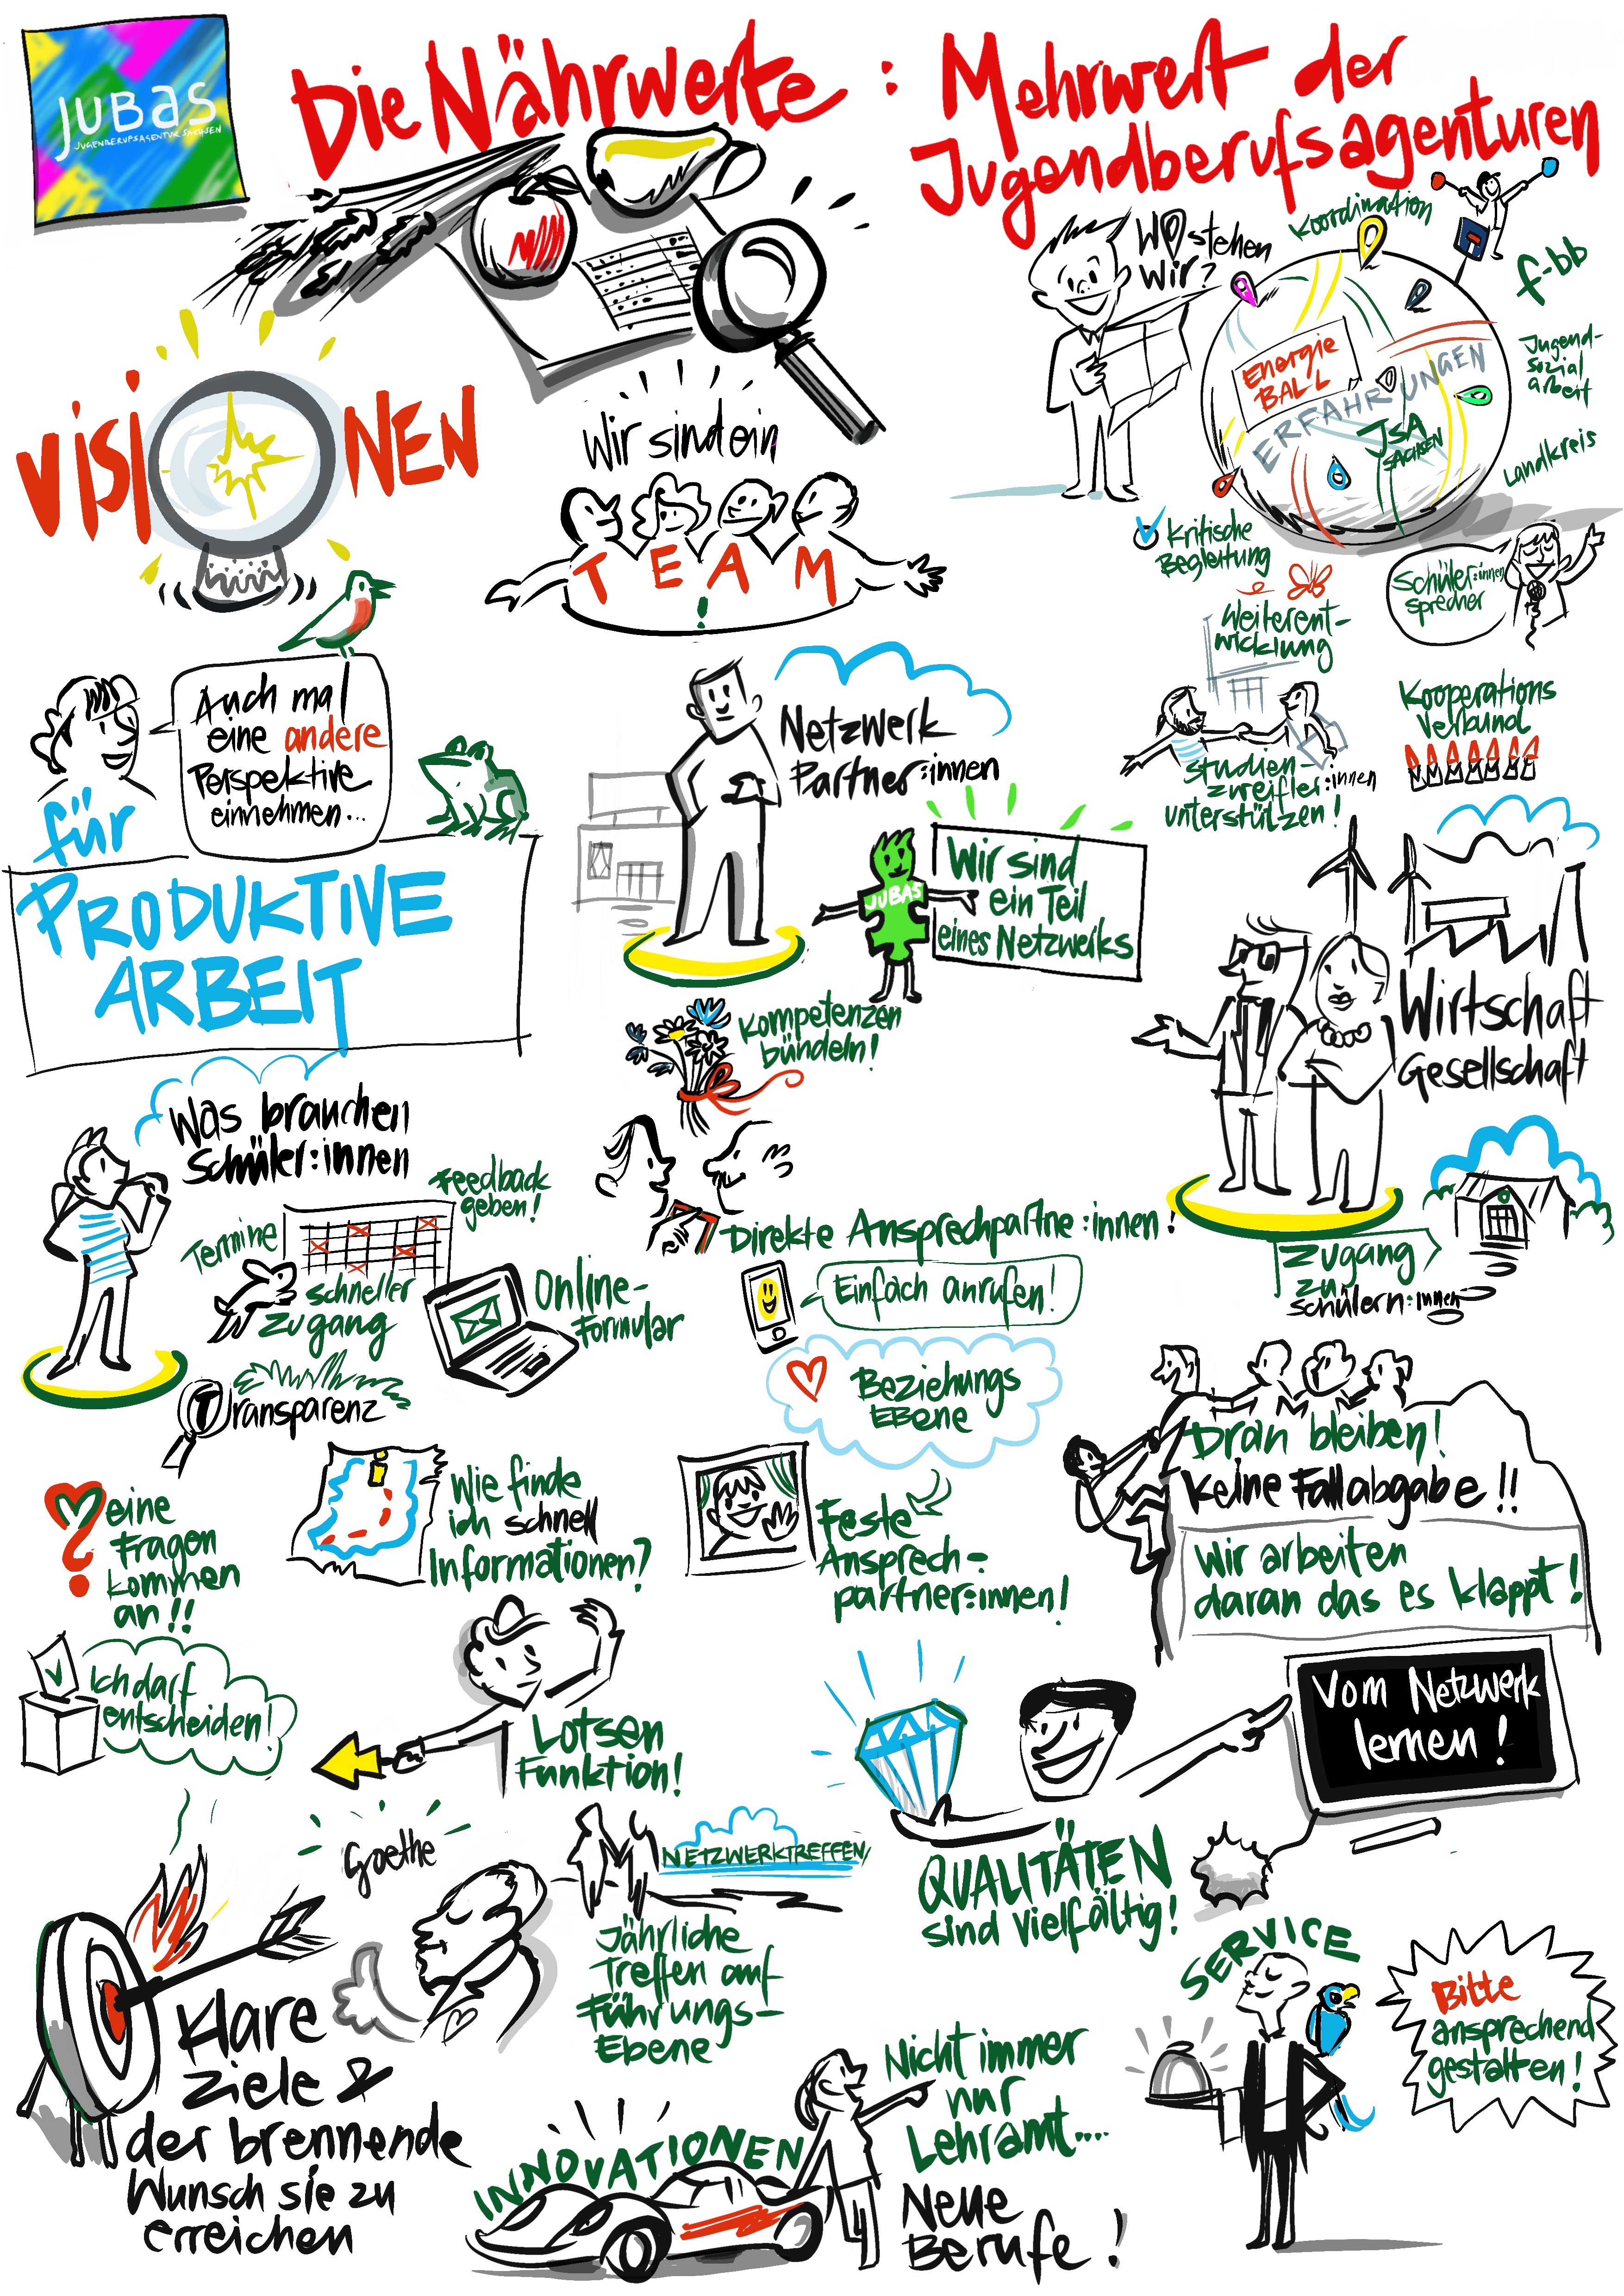 JUBAS
JUGENDBERUFSAGENTUR SACHSEN
Die Nährwerte : Mehrwert der
Jugendberufsagenturen
VISIONEN
Wir sind ein
TEAM
!
Wo stehen
wir?
Koordination
f-bb
Jugend-
sozial
arbeit
Landkreis
Energie
BALL
ERFAHRUNGEN
JSA
SACHSEN
Kritische
Begleitung
Schüler:innen
sprecher
Weiterent-
wicklung
Kooperations
Verbund
Studien-
zweifler:innen
unterstützen!
Auch mal
eine andere
Perspektive
einnehmen...
für
PRODUKTIVE
ARBEIT
Netzwerk
Partner:innen
JUBAS
Wir sind
ein Teil
eines Netzwerks
Kompetenzen
bündeln!
Wirtschaft
Gesellschaft
Was brauchen
Schüler:innen
Feedback
geben!
Termine
schneller
Zugang
Online-
Formular
Transparenz
Direkte Ansprechpartne:innen!
Einfach anrufen!
Beziehungs
EBene
Zugang
zu
schülern:innen
Meine
Fragen
kommen
an!!
Wie finde
ich schnell
Informationen?
Feste
Ansprech-
partner:innen!
Dran bleiben!
Keine Fallabgabe!!
Wir arbeiten
daran das es klappt!
Ich darf
entscheiden!
Lotsen
Funktion!
Vom Netzwerk
lernen!
QUALITÄTEN
sind vielfältig!
Goethe
NETZWERKTREFFEN
Jährliche
Treffen auf
Führungs-
Ebene
Klare
Ziele &
der brennende
Wunsch sie zu
erreichen
SERVICE
Bitte
ansprechend
gestalten!
INNOVATIONEN
Nicht immer
nur
Lehramt....
Neue
Berufe!